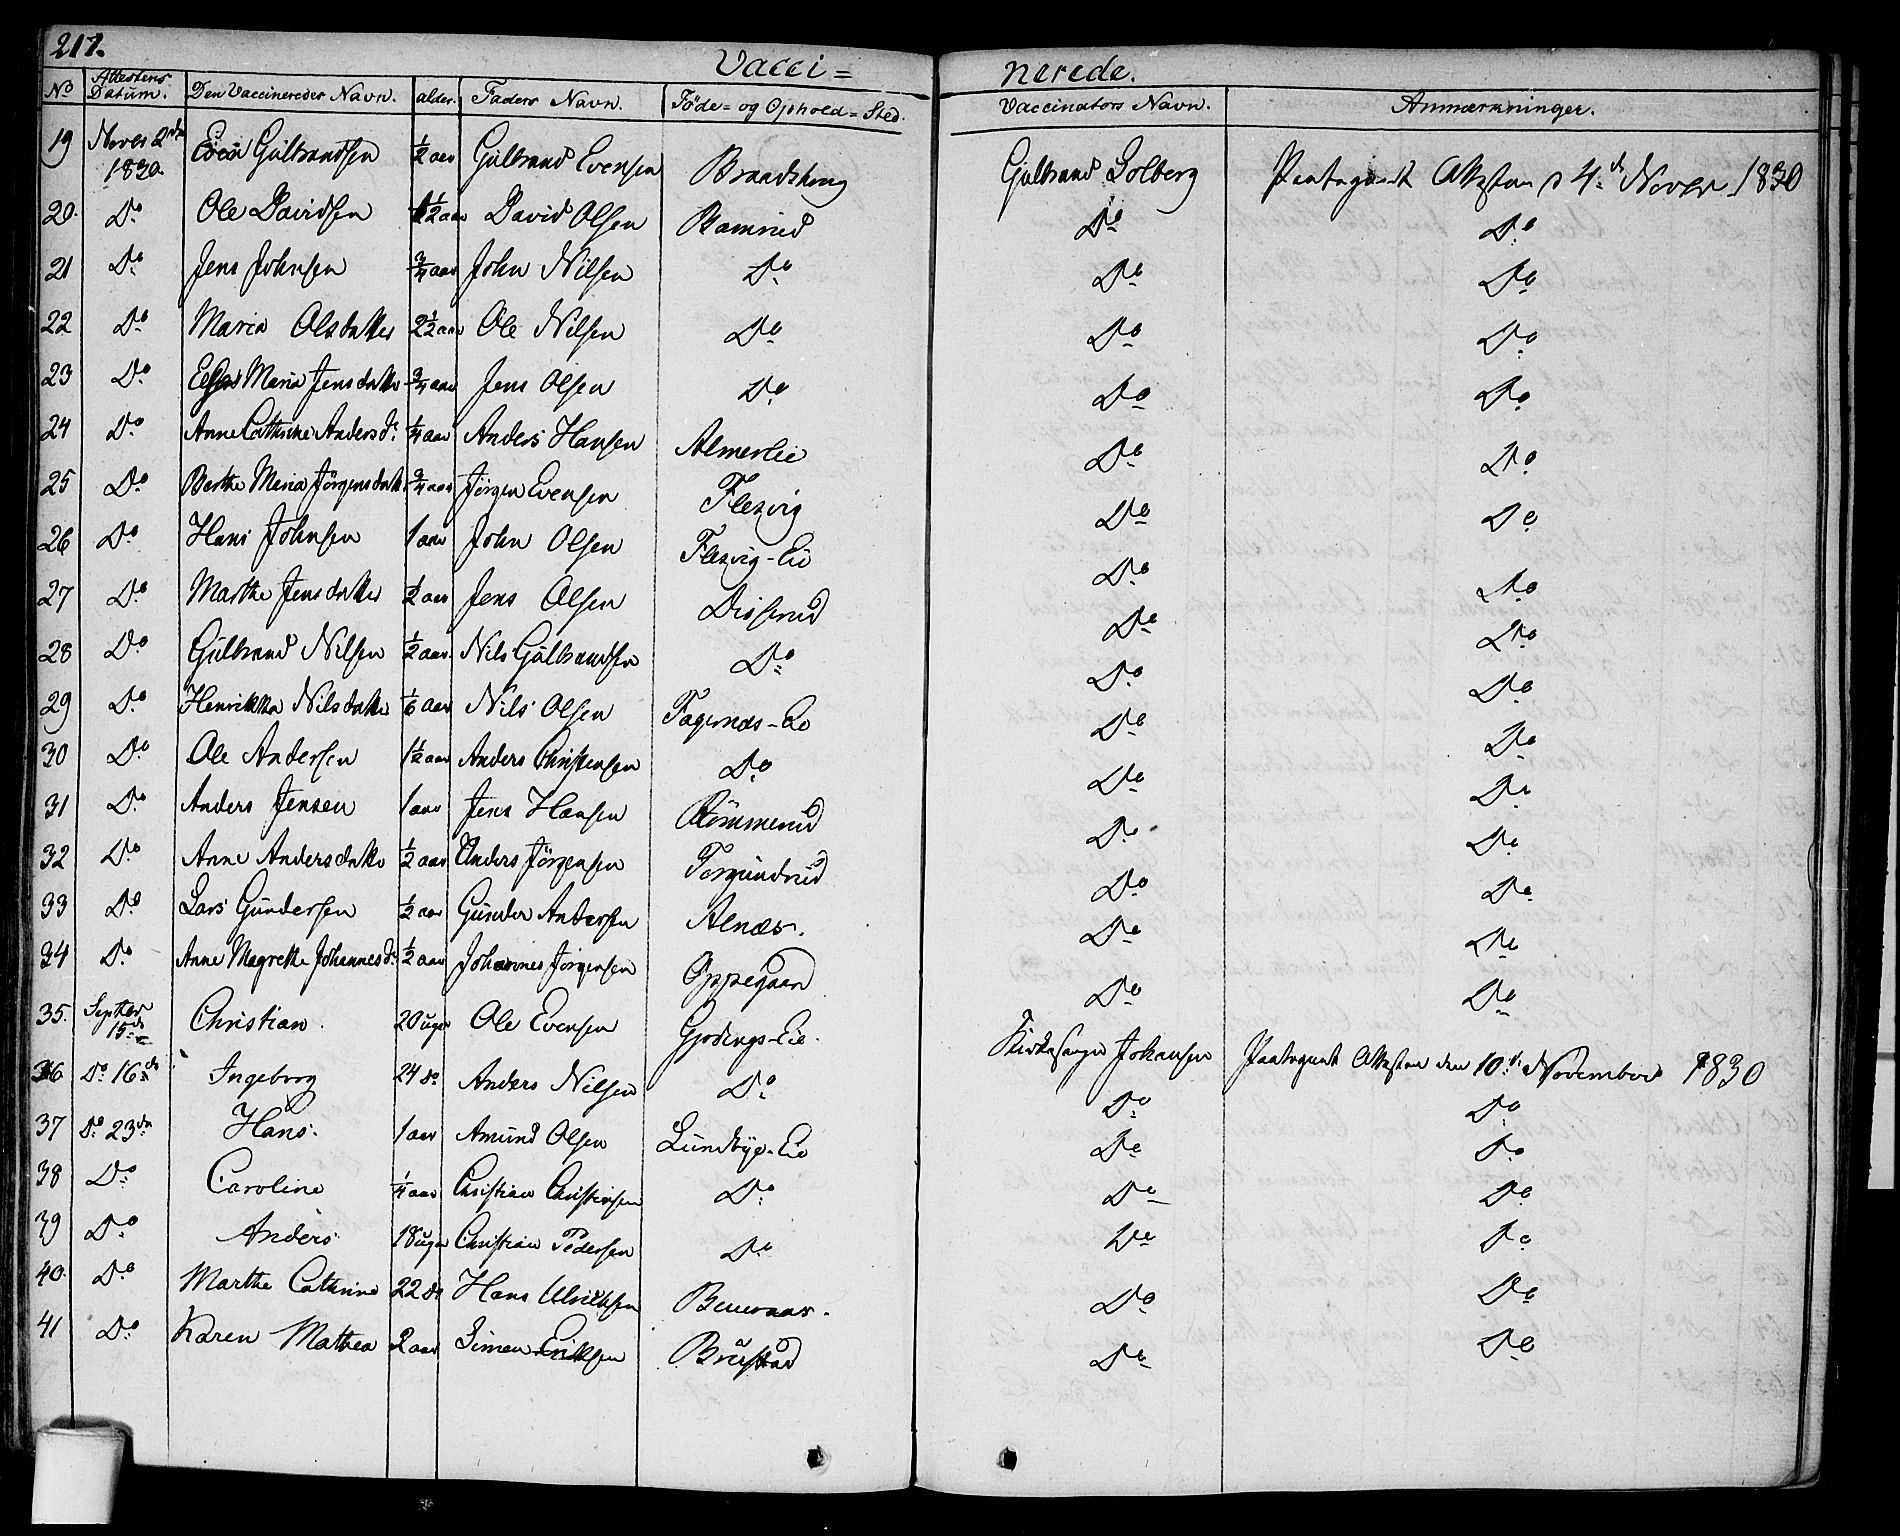 217.
Vacci= nerede.
No Attestens Datum. Den Vaccineredes Navn. alder. Faders Navn. Föde= og Ophold=Sted. Vaccinators Navn. Anmærkninger.
19 Novbr 2den 1830. Even Gulbrandsen ½ aar Gulbrand Evensen Gulbrand Solberg Attesten d 4de Novbr. 1830
20. Do Ole Davidsen 1½ aar David Olsen Do Do
21 Do Jens Johnsen ¾ aar John Nilsen Do Do Do
22 Do Maria Olsdatter 2½ aar Ole Nilsen Do Do Do
23 Do Maria Jensdatter ¾ aar Jens Olsen Do Do Do
24 Do Anne Cathrine Andersdr ¼ aar Anders Hansen Almerlie Do Do
25 Do Berthe Maria Jörgensdatt ¾ aar Jörgen Evensen Flesvig Do Do
26 Do Hans Johnsen 1 aar John Olsen Flesvig-Eie Do Do
27 Do Marthe Jensdatter ½ aar Jens Olsen Disserud Do Do
28 Do Gulbrand Nilsen ½ aar Nils Gulbrandsen Do Do Do
29 Do Henrikka Nilsdatter 1/6 aar Nils Olsen Fagernæs-Eie Do Do
30 Do Ole Andersen 1½ aar Anders Christensen Do Do Do
31 Do Anders Jensen 1 aar Jens Hansen Römmerud Do Do
32 Do Anne Andersdatter ½ aar Anders Jörgensen Torgundrud Do Do
33 Do Lars Gundersen ½ aar Gunder Andersen Alnæs. Do Do
34 Do Anne Magrethe Johannesdr ½ aar Johannes Jörgensen Oppegaard Do Do
35. Septber 15de Christian. 20 uger Ole Evensen Kirkesanger Johansen Attesten den 10de November 1830
36 Do 16de Ingeborg 24 do Anders Nilsen Do Do Do
37 Do 23de Hans. 1 aar Amund Olsen Lundbye-Eie Do Do
38 Do Caroline ¼ aar Christian Christensen Do Do Do
39 Do Anders 18 uger Christian Pedersen Do Do Do
40. Do Marthe Cathrine 22 do Hans Ulriksen Do Do
41 Do Karen Mathea 2 aar Simen Eriksen Brustad Do Do